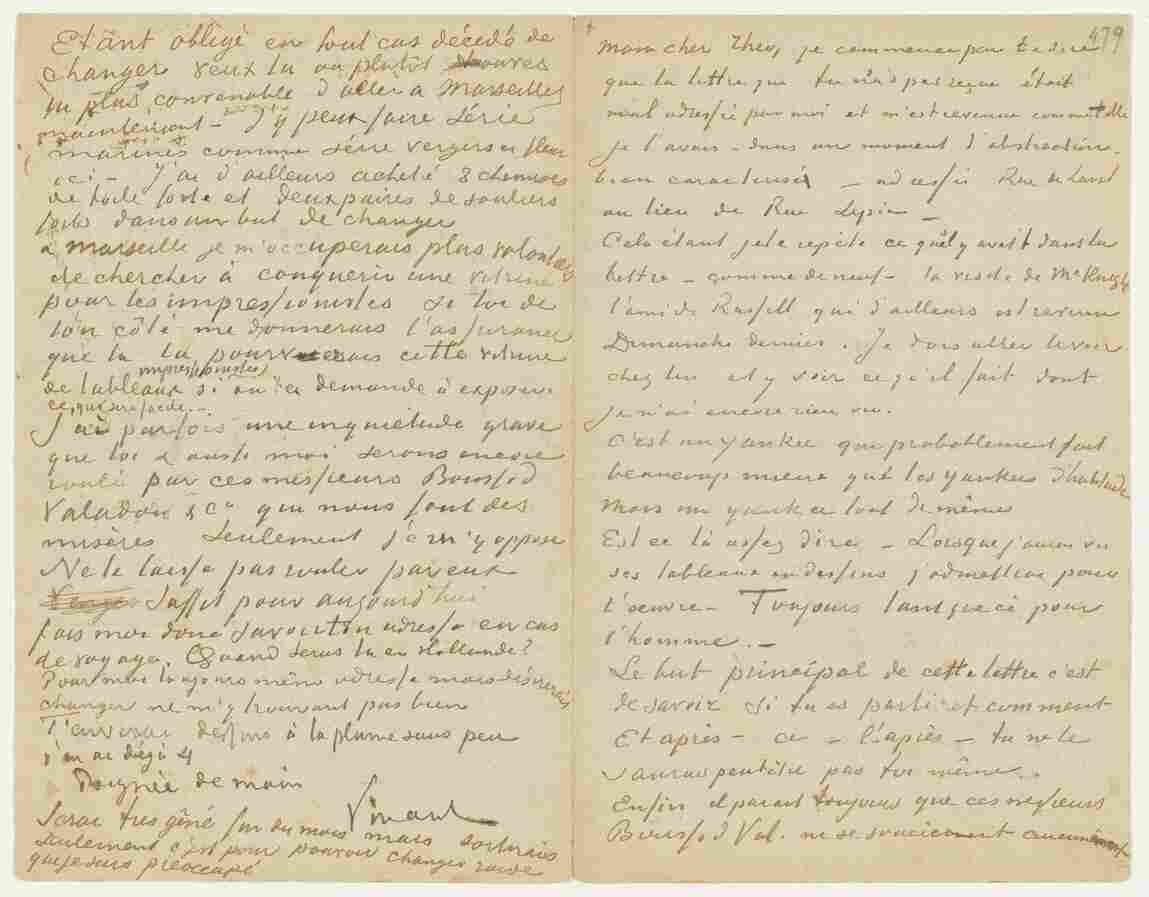 Etant obligé en tout cas décidé de
changer veux tu ou plutôt trouves
tu plus convenable d'aller à Marseille
maintenant – J'y peux faire série
marines comme série vergers en fleur
ici – J'ai d'ailleurs acheté 3 chemises
de toile forte et deux paires de souliers
forts dans un but de changer
a Marseille je m'occuperais plus volontiers
de chercher à conquerir une vitrine
pour les impressionistes si toi de
ton côté me donnerais l'assurance
que tu la pourvoierais cette vitrine
impressionistes
de tableaux si on te demande à exposer
ce qui sera facile. –
J'ai parfois une inquiétude grave
que toi & aussi moi serons encore
roulé par ces messieurs Boussod
Valadon & Cie qui nous font des
misères Seulement je m'y oppose
Ne te laisse pas rouler par eux
Suffit pour aujourd'hui
fais moi donc savoir ton adresse en cas
de voyage. Quand seras tu en Hollande?
Pour moi toujours même adresse mais désirerais
changer ne m'y trouvant pas bien
T'enverrai dessins à la plume sous peu
j'en ai déjà 4
Poignée de main
Vincent
Serai très gêné fin du mois mais sortirais
seulement c'est pour pouvoir changer
que je suis préoccupé
479
mon cher Theo, je commence par te dire
que la lettre que tu n'as pas reçue était
mal adressée par moi et m'est revenue comme telle
je l'avais – dans un moment d'abstraction
bien caracterisé – adressée Rue de Laval
au lieu de Rue Lepic –
Cela étant je te repète ce qu'il y avait dans la
lettre – comme de neuf – la visite de McKnight
l'ami de Russell qui d'ailleurs est revenu
Dimanche dernier. Je dois aller le voir
chez lui et y voir ce qu'il fait dont
je n'ai encore rien vu.
C'est un Yankee qui probablement fait
beaucoup mieux que les Yankees d'habitude
Mais un yankee tout de mêmes
Est ce là assez dire – Lorsque j'aurai vu
ses tableaux ou dessins j'admettrai pour
l'oeuvre – Toujours tant que ça pour
l'homme. –
Le but principal de cette lettre c'est
de savoir si tu es parti et comment
Et après – ce – l'après – tu ne le
sauras peutêtre pas toi même.
Enfin il parait toujours que ces messieurs
Boussod Val. ne se soucient aucunement